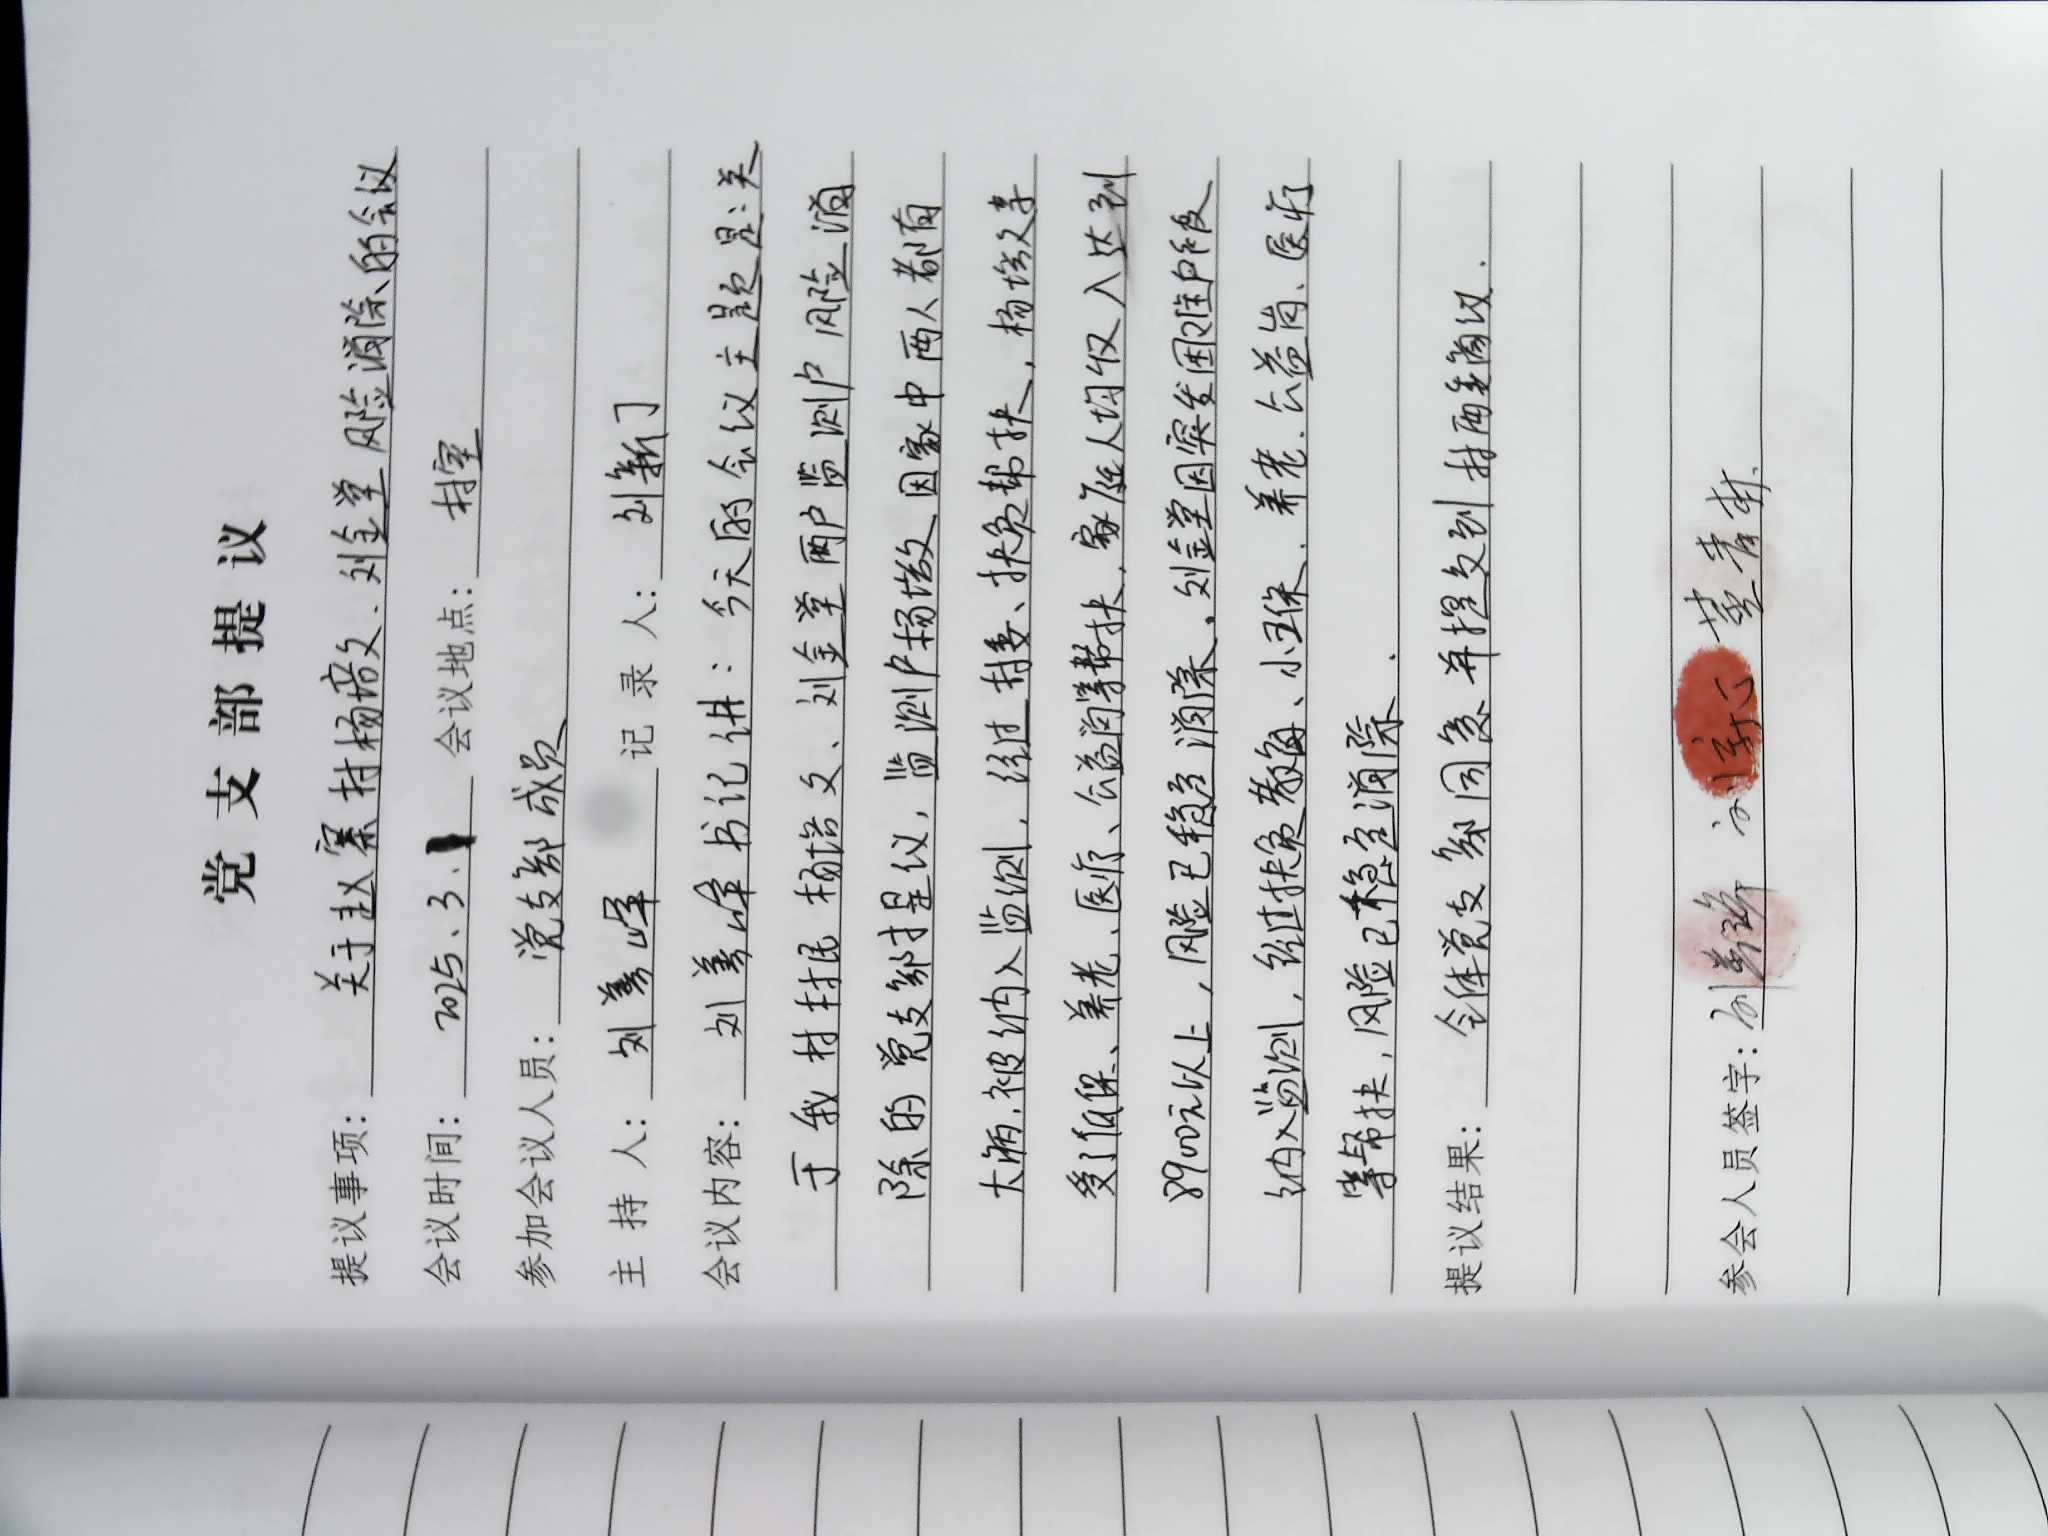 党支部提议
提议事项：关于赵寨村杨培文、刘金堂风险消除的会议
会议时间：2025、3、 会议地点：村室
参加会议人员：党支部成员
主持人：刘善峰 记录人：刘新门
会议内容：刘善峰书记讲：今天的会议主题是：关
于我村村民杨培文、刘金堂两户监测户风险消
除的党支部提议，监测户杨培文因家中两人都有
大病，被纳入监测，经过村委、扶贫帮扶，杨培文享
受了低保、养老、医疗、公益岗等帮扶，家庭人均收入达到
8900元以上，风险已稳定消除。刘金堂因突发困难户被
纳入监测，经过扶贫教育、小五保、养老、公益岗、医疗
等帮扶，风险已稳定消除．
提议结果：全体党支部同意并提交到村两委商议．
参会人员签字：刘善峰 刘新门